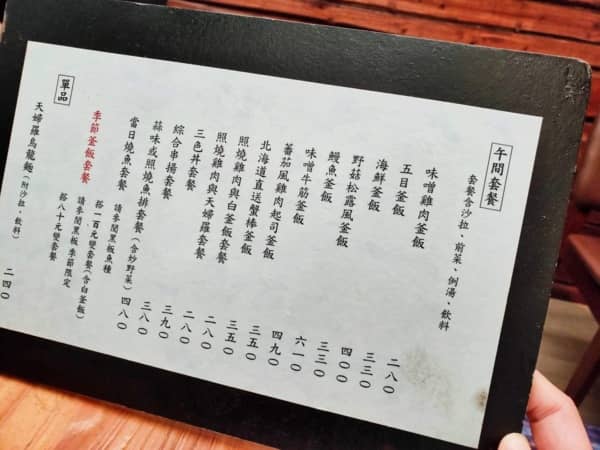 午間套餐
套餐含沙拉、前菜、例湯、飲料
味噌雞肉釜飯 二八〇
五目釜飯 三三〇
海鮮釜飯 四〇〇
野菇松露風釜飯 三三〇
鰻魚釜飯 六一〇
味噌牛筋釜飯 四九〇
蕃茄風雞肉起司釜飯 三五〇
北海道直送蟹棒釜飯 三五〇
照燒雞肉與白釜飯套餐 二八〇
照燒雞肉與天婦羅套餐 二八〇
三色丼套餐 三九〇
綜合串揚套餐 三八〇
蒜味或照燒魚排套餐（含炒野菜） 四八〇
當日燒魚套餐 請參閱黑板魚種
搭一百元變套餐（含白釜飯）
季節釜飯套餐 請參閱黑板 季節限定
搭八十元變套餐
單品
天婦羅烏龍麵（附沙拉、飲料） 二四〇